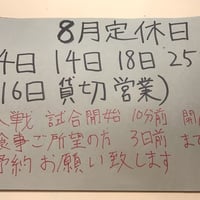 8月定休日
4日 14日 18日 25
16日 貸切営業)
戦 試合開始 10分前 開
食事ご所望の方 3日前 ま
予約お願い致します